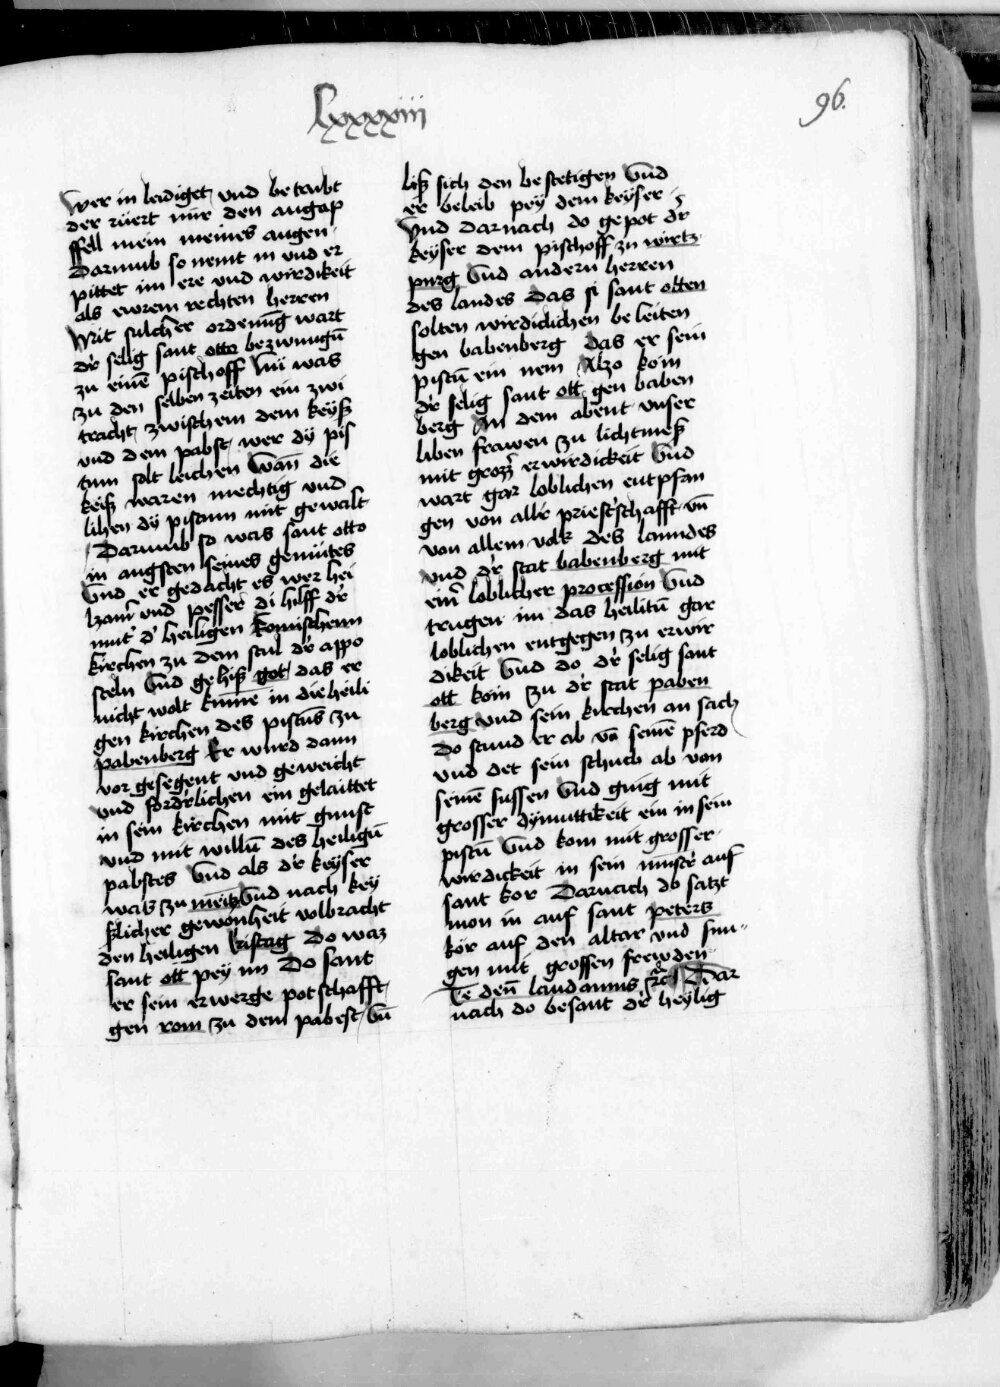 Lxxxxiii
96.
Wer in leidiget und betrubt
der rüert mir den augap
ffell mein meines augen
Darumb so nemt in und er
pittet im ere und wirdikeit
als ewrem rechten herren
Mit sulcher ordenūg wart
dr̄ selig sant otto bezwungū
zu einē pischoff Nu was
zu den selben zeiten ein zwi
tracht zwischenn dem keyß
und dem pabst wer dy pis
tum solt leichen Wān die
keiß waren mechtig und
lihen dy pistum mit gewalt
Darumb so was sant otto
in angsten seines gemütes
Und er gedacht es wer hei
lzam̄ und pesser di hilff dr̄
mut̄ d̄ heiligen Romischenn
kirchen zu dem stul dr̄ appo
steln Und gehiß got das er
nicht wolt kume in die heili
gen kirchen des pistūs zu
pabenberg Er wurd dann
vor gesegent und geweicht
und fordr̄lichen ein gelaittet
in sein kirchen mit gunst
und mit willū des heiligū
pabstes Und als dr̄ keyser
was zu meitz Und nach key
ßlicher gewonheit volbracht
den heiligen kristag Do waz
sant ott pey im Do sant
er sein erwerge potschafft
gen rom zu dem pabest Uū
liß sich den bestetigen Und
er beleib pey dem keyser
Und darnach do gepot dr̄
keyser dem pischoff zu wirtz
purg Und andern herren
des landes Das si sant otten
solten wirdiclichen beleiten
gen babenberg das er sein
pistū ein nem Also kom
dr̄ selig sant ott gen baben
berg An dem abent unser
liben frawen zu lichtmeß
mit grozz̄ erwirdickeit Und
wart gar loblichen entpfan
gen von aller priest̄schafft uū
von allem volk des lanndes
und dr̄ stat babenberg mit
ein̄ loblicher procession Und
trugen im das heilitū gar
loblichen entgegen zu erwir
dikeit Und do dr̄ selig sant
ott kom zu dr̄ stat paben
berg und sein kirchen an sach
Do stund er ab vō seinē pferd
und det sein schuch ab von
seinē fussen Und ging mit
grosser dymuttikeit ein in sein
pistū Und kom mit grosser
wirdickeit in sein munst̄ auf
sant kor Darnach do satzt
mon in auf sant peters
kor auf den altar und sun
gen mit grossen frewden
Te deū laudamus Dar
nach do besant dr̄ heylig